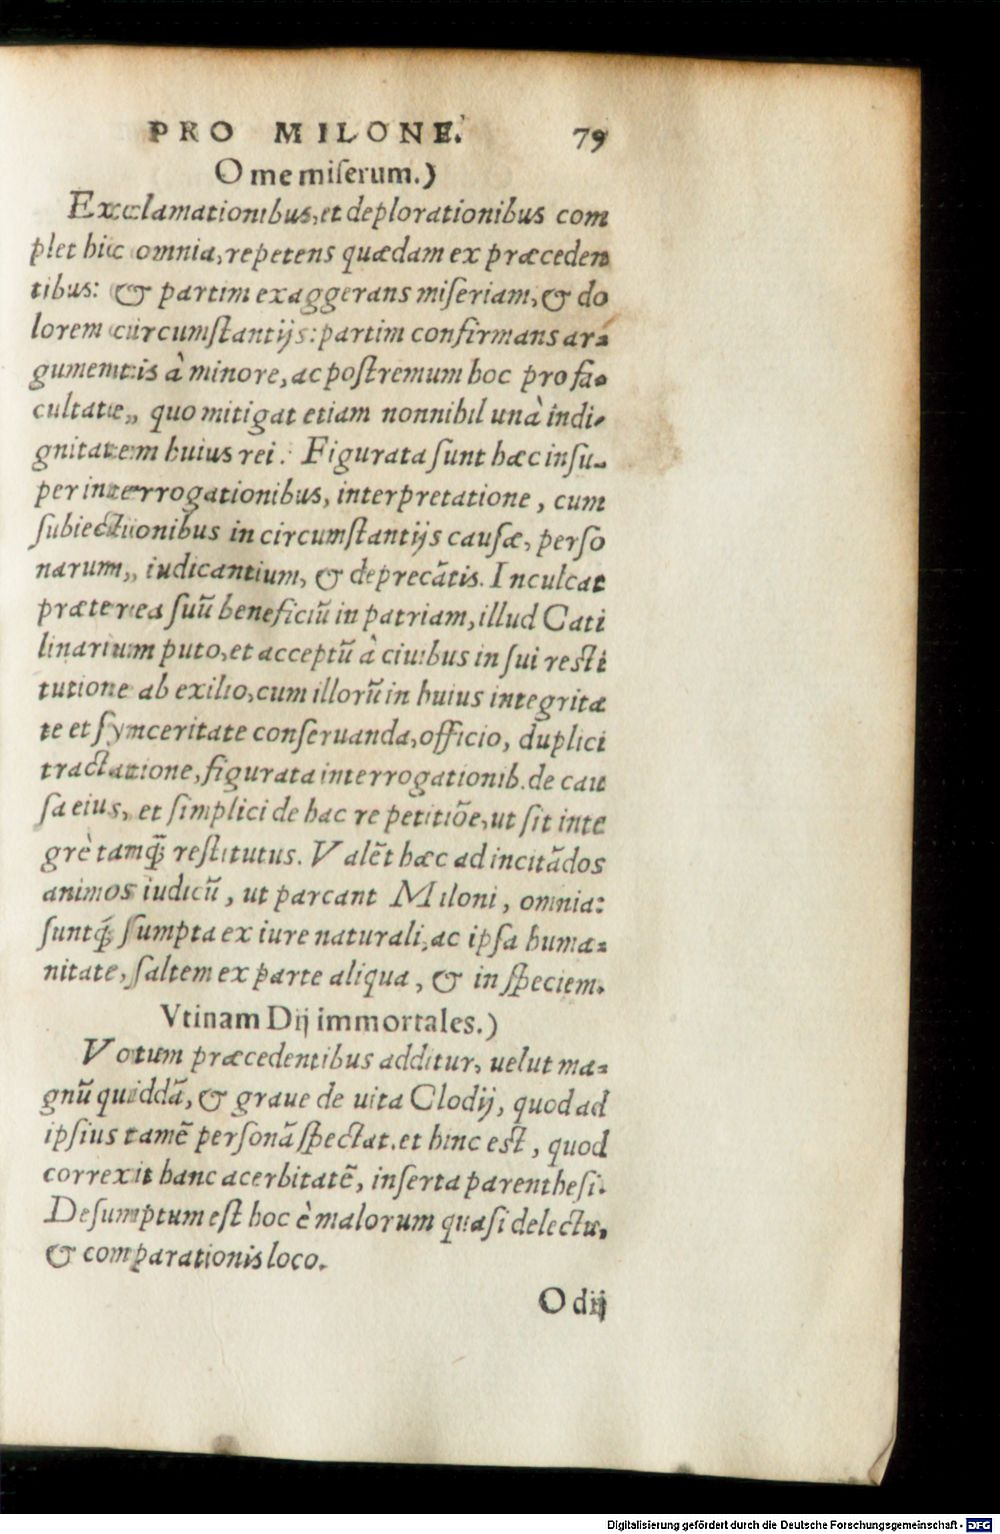 PRO MILONE. 79
O me miſerum.)
Exclamationibus, et deplorationibus com
plet hic omnia, repetens quædam ex præceden
tibus: & partim exaggerans miſeriam, & do
lorem circumſtantijs: partim confirmans ar-
gumentis à minore, ac poſtremum hoc pro fa-
cultate, quo mitigat etiam nonnihil unà indi-
gnitatem huius rei. Figurata ſunt hæc inſu-
per interrogationibus, interpretatione, cum
ſubiectionibus in circumſtantijs cauſæ, perſo
narum, iudicantium, & deprecãtis. Inculcat
præterea ſuũ beneficiũ in patriam, illud Cati
linarium puto, et acceptũ à ciuibus in ſui reſti
tutione ab exilio, cum illorũ in huius integrita
te et ſynceritate conſeruanda, officio, duplici
tractatione, figurata interrogationib. de cau
ſa eius, et ſimplici de hac repetitiõe, ut ſit inte
grè tamq̃ reſtitutus. Valẽt hæc ad incitãdos
animos iudicũ, ut parcant Miloni, omnia:
ſuntq́; ſumpta ex iure naturali, ac ipſa huma-
nitate, ſaltem ex parte aliqua, & in ſpeciem.
Vtinam Dij immortales.)
Votum præcedentibus additur, uelut ma-
gnũ quiddã, & graue de uita Clodij, quod ad
ipſius tamẽ perſonã ſpectat. et hinc eſt, quod
correxit hanc acerbitatẽ, inſerta parentheſi.
Deſumptum eſt hoc è malorum quaſi delectu,
& comparationis loco.
O dij
Digitalisierung gefördert durch die Deutsche Forschungsgemeinschaft - DFG